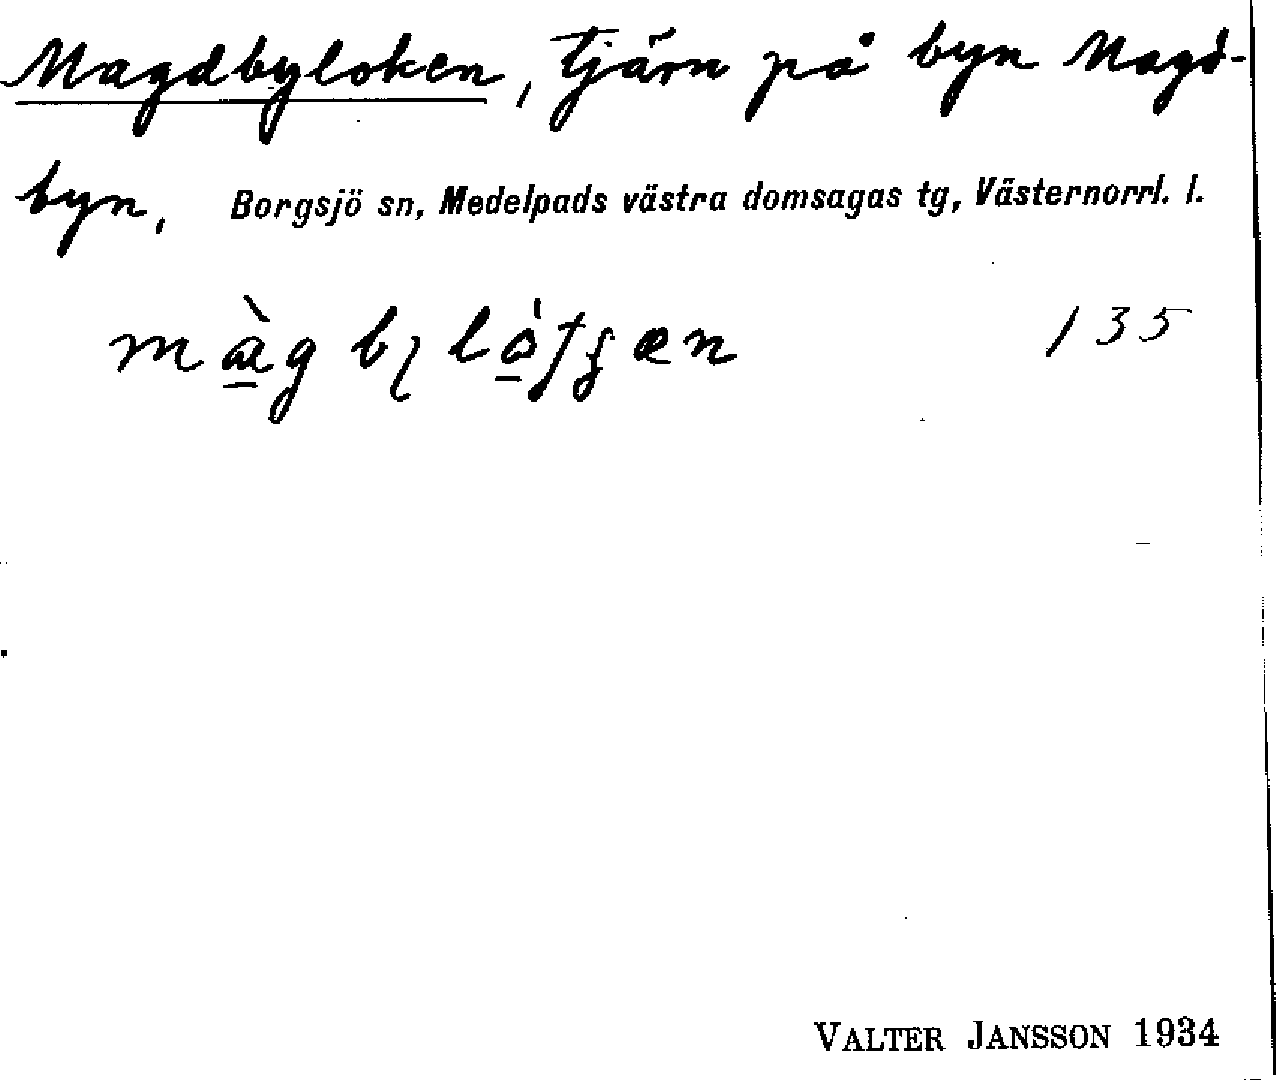 Magdbyloken, tjärn på byn Magd-
byn, Borgsjö sn, Medelpads västra domsagas tg, Västernorrl. l.
135
VALTER JANSSON 1934